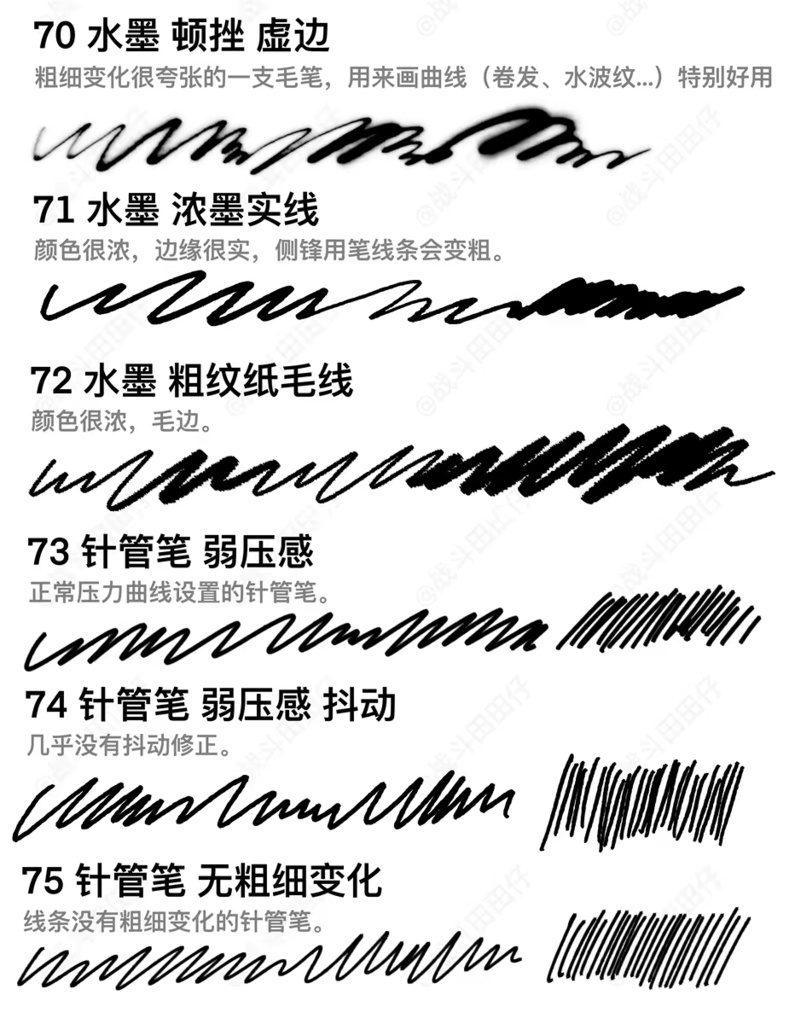 70 水墨 顿挫 虚边
粗细变化很夸张的一支毛笔，用来画曲线（卷发、水波纹...）特别好用
71 水墨 浓墨实线
颜色很浓，边缘很实，侧锋用笔线条会变粗。
72 水墨 粗纹纸毛线
颜色很浓，毛边。
73 针管笔 弱压感
正常压力曲线设置的针管笔。
74 针管笔 弱压感 抖动
几乎没有抖动修正。
75 针管笔 无粗细变化
线条没有粗细变化的针管笔。
@战斗田田仔